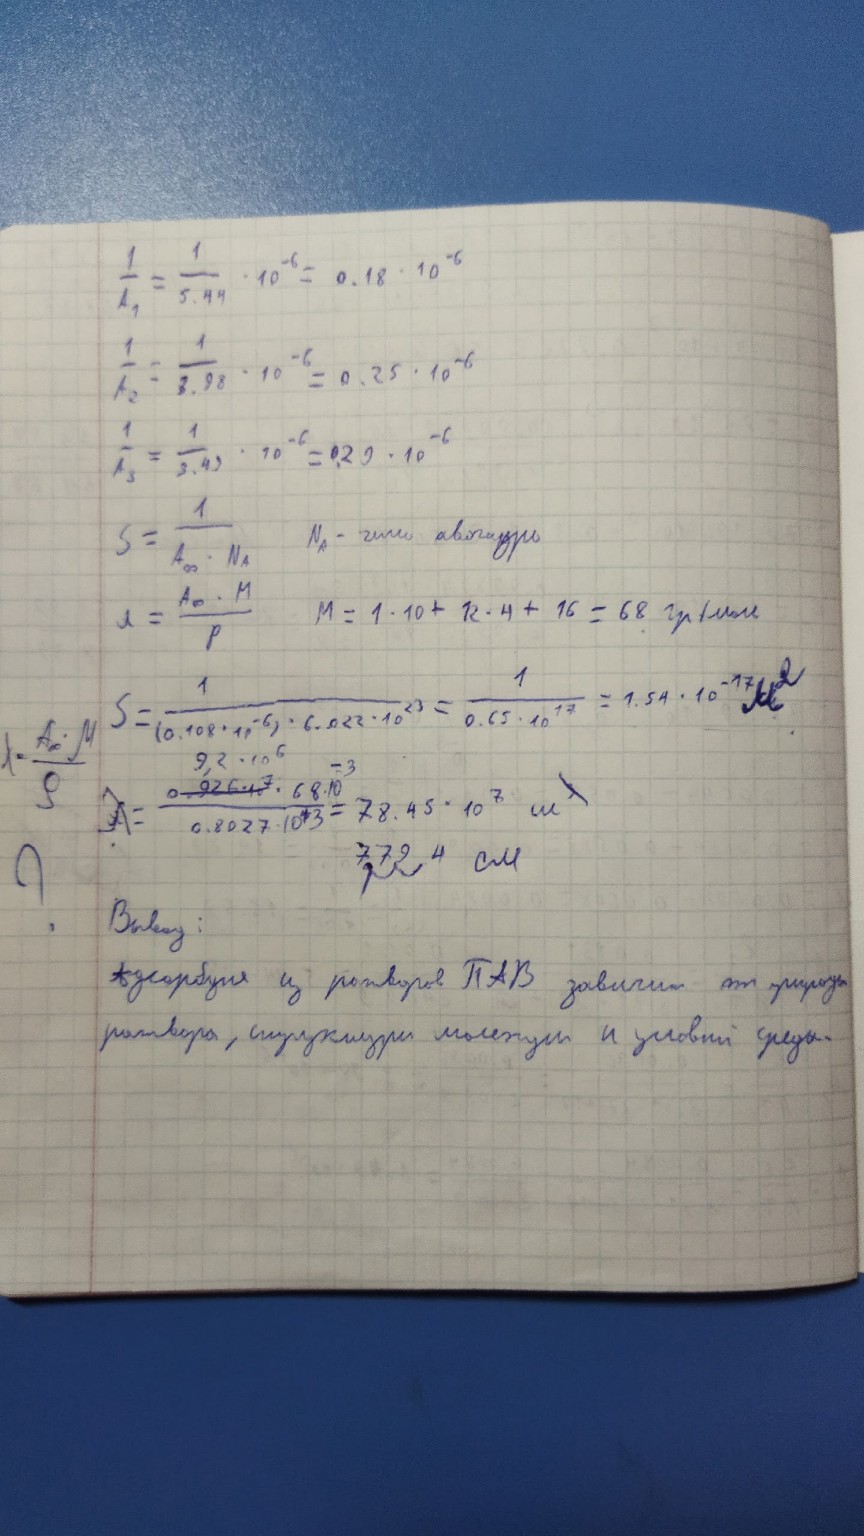 1/A₁ = 1/5.44 · 10⁻⁶ = 0.18 · 10⁻⁶
1/A₂ = 1/3.98 · 10⁻⁶ = 0.25 · 10⁻⁶
1/A₃ = 1/3.49 · 10⁻⁶ = 0,29 · 10⁻⁶
S = 1/(A∞ · N_A) N_A - число авогадро
л = (A∞ · M)/ρ M = 1 · 10 + 12 · 4 + 16 = 68 гр/моль
S = 1/((0.108 · 10⁻⁶) · 6.022 · 10²³) = 1/(0.65 · 10¹⁷) = 1.54 · 10⁻¹⁷ м²
λ = (A∞ · M)/ρ
9,2 · 10⁶
λ = (· 68 · 10⁻³)/(0.8027 · 10⁺³) = 78.45 · 10⁷ м
779,4 см
?
Вывод:
Адсорбция из растворов ПАВ зависит от природы
раствора, структуры молекул и условий среды.